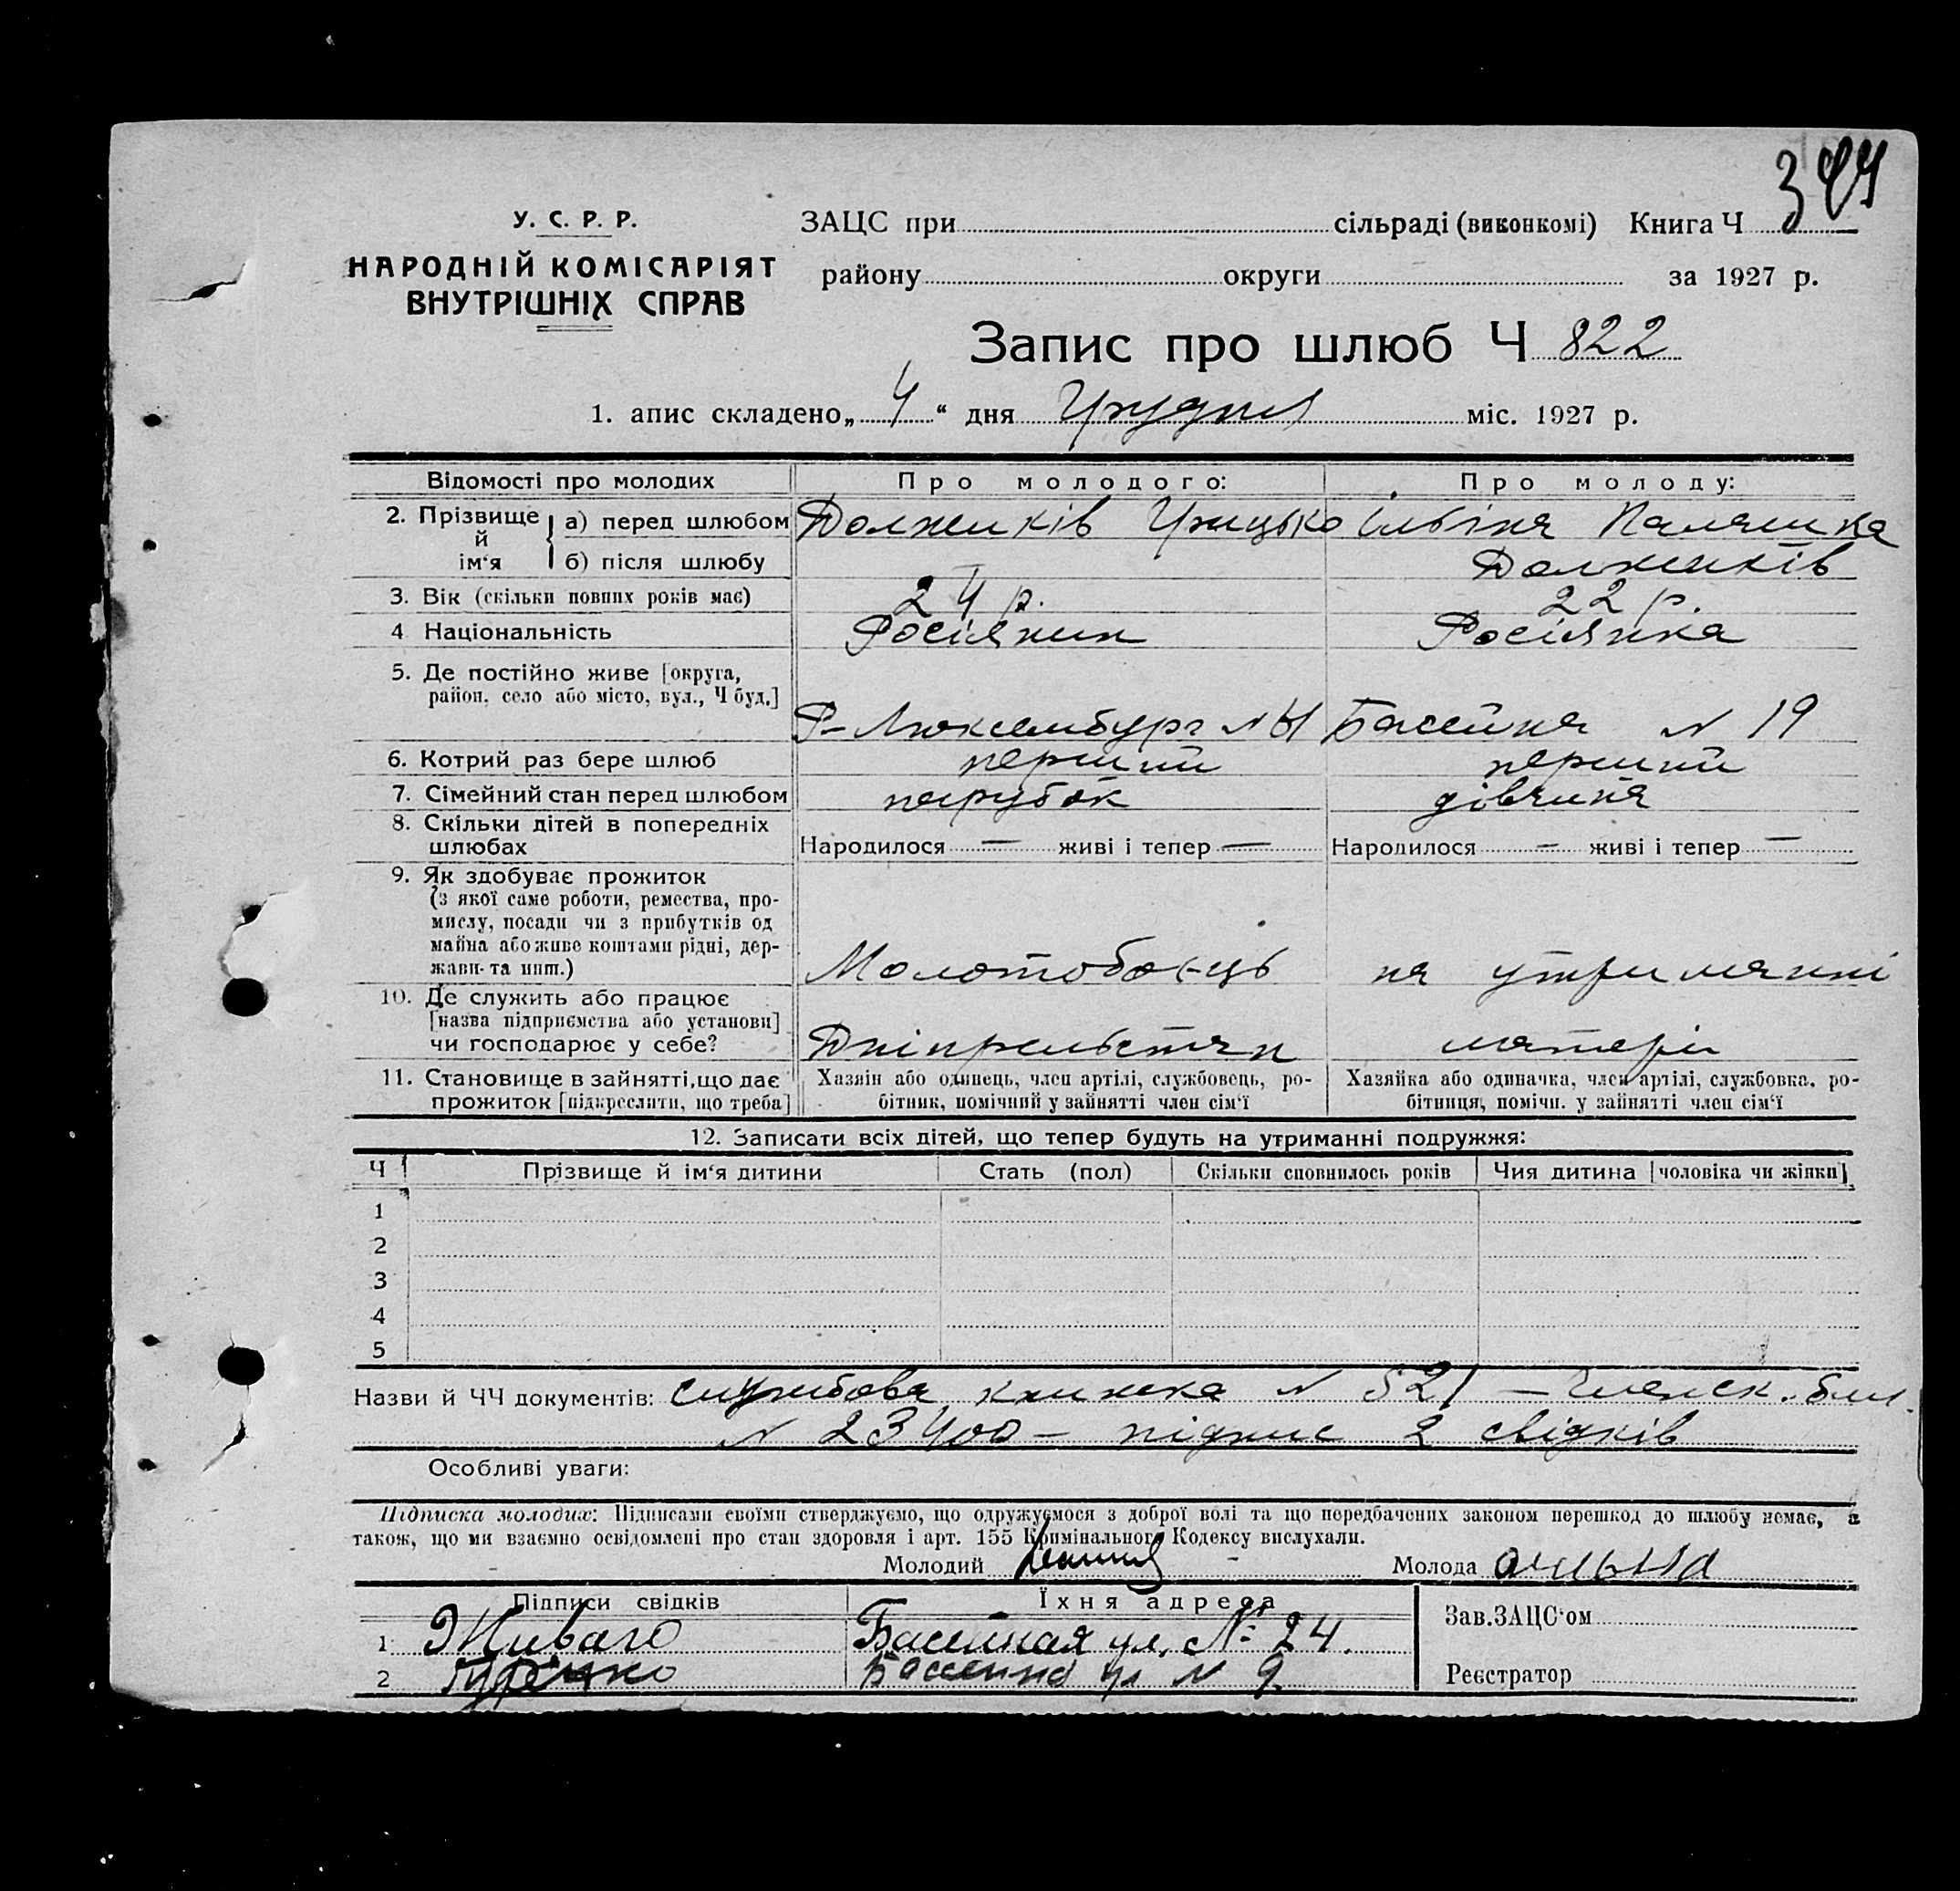 344
У. С. Р. Р.
НАРОДНІЙ КОМІСАРІЯТ
ВНУТРІШНІХ СПРАВ
ЗАЦС при сільраді (виконкомі) Книга Ч
району округи за 1927 р.
Запис про шлюб Ч 822
1. апис складено „ 4 “ дня Грудня міс. 1927 р.
Відомості про молодих Про молодого: Про молоду:
2. Прізвище й ім‘я а) перед шлюбом Должиків Грицько Ільїна Палашка
б) після шлюбу Должиків
3. Вік (скільки повних років має) 24 р. 22 р.
4 Національність Росіянин Росіянка
5. Де постійно живе [округа,
район, село або місто, вул., Ч буд.]
Р-Люксембург N Басейна N 19
6. Котрий раз бере шлюб перший перший
7. Сімейний стан перед шлюбом парубок дівчина
8. Скільки дітей в попередніх
шлюбах Народилося — живі і тепер — Народилося — живі і тепер —
9. Як здобуває прожиток
(з якої саме роботи, ремества, про-
мислу, посади чи з прибутків од
майна або живе коштами рідні, дер-
жави та инш.) Молотобоєць на утриманні
10. Де служить або працює
[назва підприємства або установи]
чи господарює у себе? Дніпрельстан матері
11. Становище в зайнятті, що дає Хазяін або одинець, член артілі, службовець, ро- Хазяйка або одиначка, член артілі, службовка, ро-
прожиток [підкреслити, що треба] бітник, помічний у зайнятті член сім‘ї бітниця, помічн. у зайнятті член сім‘ї
12. Записати всіх дітей, що тепер будуть на утриманні подружжя:
Ч Прізвище й ім‘я дитини Стать (пол) Скільки сповнилось років Чия дитина [чоловіка чи жінки]
1
2
3
4
5
Назви й ЧЧ документів: службова книжка N 521 — Членск. бил.
N 23400 — підпис 2 свідків
Особливі уваги:
Підписка молодих: Підписами своїми стверджуємо, що одружуємося з доброї волі та що передбачених законом перешкод до шлюбу немає, а
також, що ми взаємно освідомлені про стан здоровля і арт. 155 Кримінального Кодексу вислухали.
Молодий Молода ильина
Підписи свідків Їхня адреса Зав. ЗАЦС‘ом
1 Живаго Басейная ул. № 24.
2 ул N 9 Реєстратор